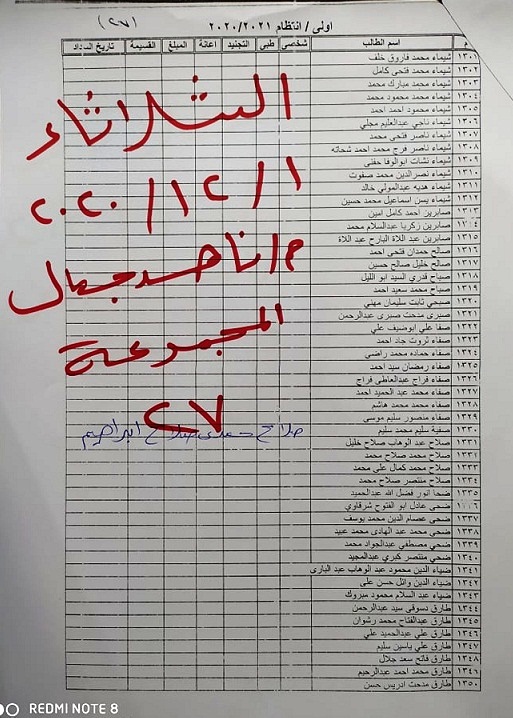 (٢٧)
اولى / انتظام ٢٠٢٠/٢٠٢١
م اسم الطالب شخصي طبى التجنيد اعانة المبلغ القسيمة تاريخ السداد
١٣٠١ شيماء محمد فاروق خلف
١٣٠٢ شيماء محمد فتحى كامل
١٣٠٣ شيماء محمد مبارك محمد
١٣٠٤ شيماء محمد محمود محمد
١٣٠٥ شيماء محمود احمد احمد
١٣٠٦ شيماء ناجي عبدالعليم مجلي
١٣٠٧ شيماء ناصر فتحي محمد
١٣٠٨ شيماء ناصر فرج محمد احمد شحاته
١٣٠٩ شيماء نشات ابوالوفا حفنى
١٣١٠ شيماء نصرالدين محمد صفوت
١٣١١ شيماء هديه عبدالمولي خالد
١٣١٢ شيماء يسن اسماعيل محمد حسين
١٣١٣ صابرين احمد كامل امين
١٣١٤ صابرين زكريا عبدالسلام محمد
١٣١٥ صابرين عبد اللاة البارح عبد اللاة
١٣١٦ صالح حمدان فتحي احمد
١٣١٧ صالح خليل صالح حسين
١٣١٨ صباح قدري السيد ابو الليل
١٣١٩ صباح محمد سعيد احمد
١٣٢٠ صبحي ثابت سليمان مهني
١٣٢١ صبرى مدحت صبرى عبدالرحمن
١٣٢٢ صفا علي ابوضيف علي
١٣٢٣ صفاء ثروت جاد احمد
١٣٢٤ صفاء حماده محمد راضي
١٣٢٥ صفاء رمضان سيد احمد
١٣٢٦ صفاء فراج عبدالعاطي فراج
١٣٢٧ صفاء محمد عبد الحميد احمد
١٣٢٨ صفاء محمد محمد هاشم
١٣٢٩ صفاء منصور سليم موسى
١٣٣٠ صفية سليم محمد سليم
١٣٣١ صلاح عبد الوهاب صلاح خليل
١٣٣٢ صلاح محمد صلاح محمد
١٣٣٣ صلاح محمد كمال على محمد
١٣٣٤ صلاح منتصر صلاح محمد
١٣٣٥ ضحا انور فضل الله عبدالحميد
١٣٣٦ ضحى عادل ابو الفتوح شرقاوي
١٣٣٧ ضحى عصام الدين محمد يوسف
١٣٣٨ ضحى محمد عبد الهادى محمد عبيد
١٣٣٩ ضحي مصطفي عبدالجواد محمد
١٣٤٠ ضحي منتصر كبري عبدالمجيد
١٣٤١ ضياء الدين محمود عبد الوهاب عبد البارى
١٣٤٢ ضياء الدين وائل حسن على
١٣٤٣ ضياء عبد السلام محمود مبروك
١٣٤٤ طارق دسوقى سيد عبدالرحمن
١٣٤٥ طارق عبدالفتاح محمد رشوان
١٣٤٦ طارق علي عبدالحميد علي
١٣٤٧ طارق علي ياسين سليم
١٣٤٨ طارق فاتح سعد جلال
١٣٤٩ طارق محمد احمد عبدالرحيم
١٣٥٠ طارق مدحت ادريس حسن
الثلاثاء
١/١٢/٢٠٢٠
م/ناهد جمال
المجموعة
٢٧
صلاح صلاح ابراهيم
REDMI NOTE 8